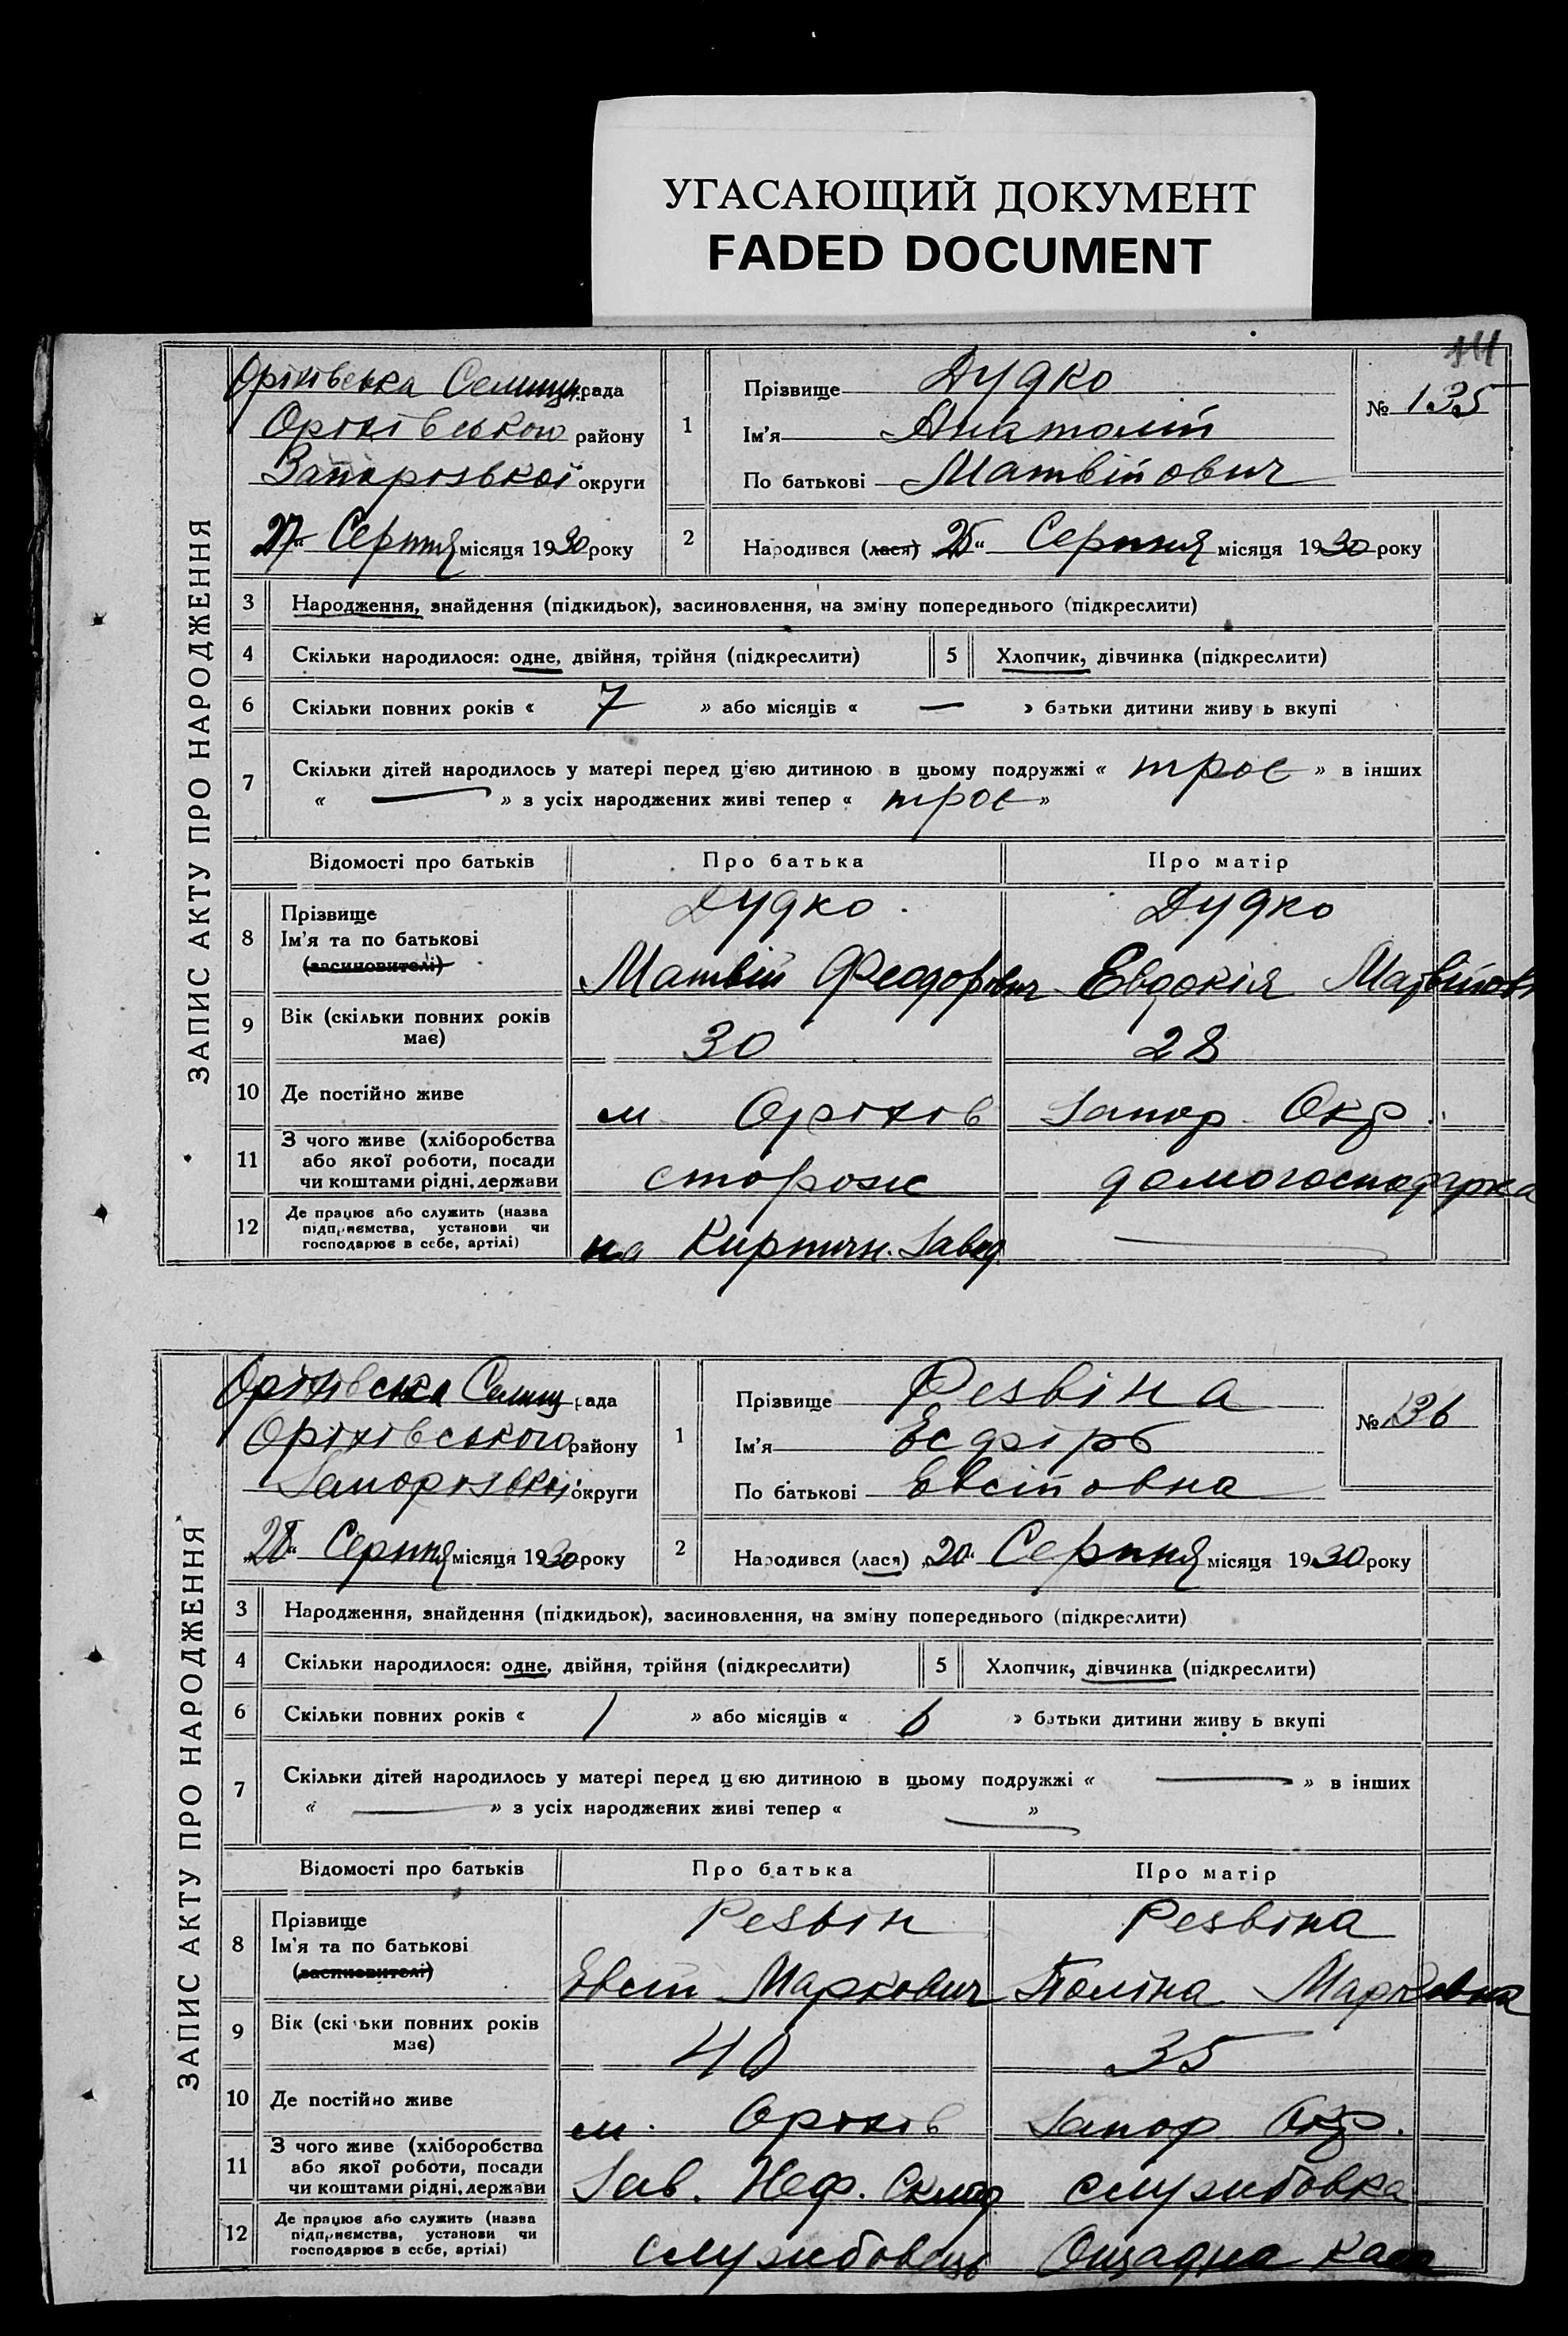 УГАСАЮЩИЙ ДОКУМЕНТ
FADED DOCUMENT
ЗАПИС АКТУ ПРО НАРОДЖЕННЯ
Оріхівська Селищ. рада
Оріхівського району
Запорізької округи
27 Серпня місяця 1930 року
1
Прізвище Дудко
Ім'я Анатолій
По батькові Матвійович
№ 135
2
Народився (лася) 25 Серпня місяця 1930 року
3 Народження, знайдення (підкидьок), засиновлення, на зміну попереднього (підкреслити)
4 Скільки народилося: одне, двійня, трійня (підкреслити) 5 Хлопчик, дівчинка (підкреслити)
6 Скільки повних років « 7 » або місяців « — » батьки дитини живу ь вкупі
7 Скільки дітей народилось у матері перед цією дитиною в цьому подружжі « троє » в інших
« — » з усіх народжених живі тепер « троє »
Відомості про батьків Про батька Про матір
8 Прізвище
Ім'я та по батькові
(засиновителі)
Дудко Дудко
Матвій Феодорович Евдокія Матвійовн
9 Вік (скільки повних років
має)
30 28
10 Де постійно живе
м. Оріхів Запор. Окр.
11 З чого живе (хліборобства
або якої роботи, посади
чи коштами рідні, держави
сторож домогосподарка
12 Де працює або служить (назва
підприємства, установи чи
господарює в себе, артілі)
на Кирпичн. Завод. —
ЗАПИС АКТУ ПРО НАРОДЖЕННЯ
Оріхівська Селищ рада
Оріхівського району
Запорізької округи
28 Серпня місяця 1930 року
1
Прізвище Резвіна
Ім'я Есфірь
По батькові Евсійовна
№ 136
2
Народився (лася) 20 Серпня місяця 1930 року
3 Народження, знайдення (підкидьок), засиновлення, на зміну попереднього (підкреслити)
4 Скільки народилося: одне, двійня, трійня (підкреслити) 5 Хлопчик, дівчинка (підкреслити)
6 Скільки повних років « 1 » або місяців « 6 » батьки дитини живу ь вкупі
7 Скільки дітей народилось у матері перед цією дитиною в цьому подружжі « — » в інших
« — » з усіх народжених живі тепер « — »
Відомості про батьків Про батька Про матір
8 Прізвище
Ім'я та по батькові
(засиновителі)
Резвін Резвіна
Евсій Маркович Поліна Марковна
9 Вік (скільки повних років
має)
40 35
10 Де постійно живе
м. Оріхів Запор Окр.
11 З чого живе (хліборобства
або якої роботи, посади
чи коштами рідні, держави
Зав. Неф. Склад службовка
12 Де працює або служить (назва
підприємства, установи чи
господарює в себе, артілі)
службовець Ощадна каса